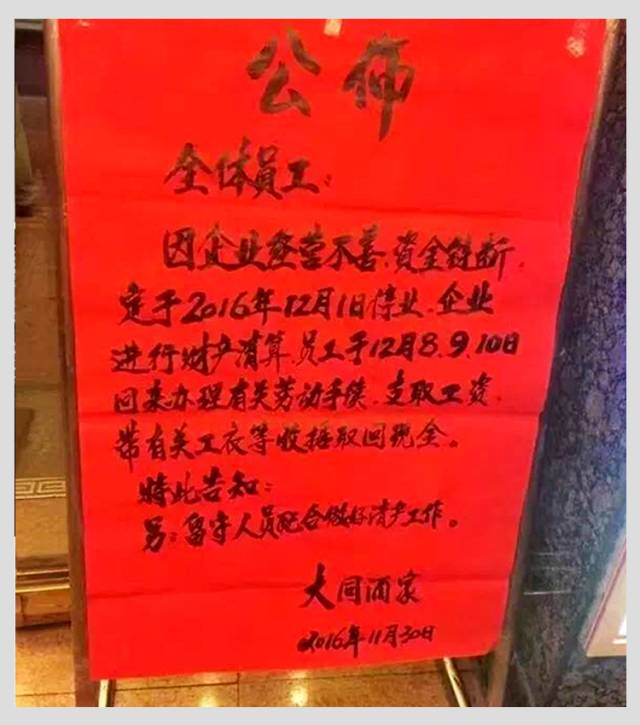 公佈
全体员工：
因企业经营不善、资金链断，
定于2016年12月1日停业、企业
进行财产清算、员工于12月8、9、10日
回来办理有关劳动手续、支取工资，
带有关工衣等收据取回现金。
特此告知：
另：留守人员配合做好清产工作。
大同酒家
2016年11月30日